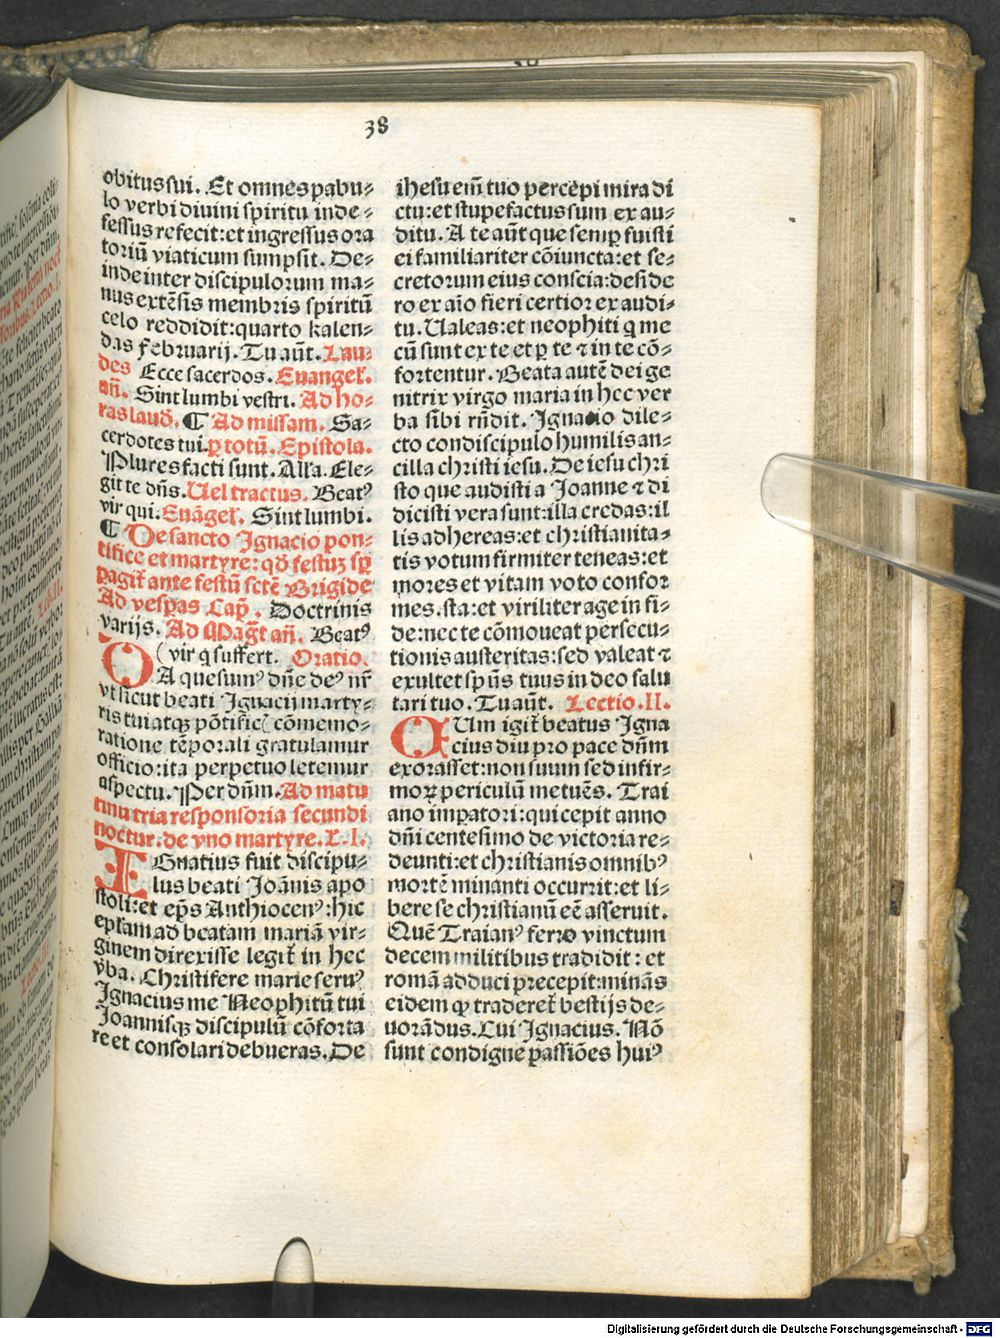 38
obitus sui. Et omnes pabu⸗
lo verbi diuini spiritu inde⸗
fessus refecit: et ingressus ora
toriũ viaticum sumpsit. De⸗
inde inter discipulorum ma⸗
nus extẽsis membris spiritũ
celo reddidit: quarto kalen⸗
das februarij. Tu aũt. Lau⸗
des Ecce sacerdos. Euangeł.
añ. Sint lumbi vestri. Ad ho⸗
ras laud̃. ¶ Ad missam. Sa⸗
cerdotes tui. ꝑ totũ. Epistola.
Plures facti sunt. Alła. Ele⸗
git te dñs. Uel tractus. Beatꝰ
vir qui. Euãgeł. Sint lumbi.
¶ De sancto Ignacio pon⸗
tifice et martyre: qđ festuz
ante festũ sctẽ Brigide
Ad vesꝑas Cap̃. Doctrinis
varijs. Ad Mag̃t añ. Beatꝰ
(vir q suffert. Oratio.
DA quesumꝰ dñe deꝰ nr̃
vt sicut beati Ignacij marty⸗
ris tui atqꝫ põtific( cõmemo⸗
ratione tẽporali gratulamur
officio: ita perpetuo letemur
aspectu. Per dñm. Ad matu
tinũ tria responsoria secundi
noctur. de vno martyre. L. I.
IGnatius fuit discipu⸗
lus beati Joãnis apo
stoli: et ep̃s Anthiocenꝰ: hic
ep̃lam ad beatam mariã vir⸗
ginem direxisse legit̃ in hec
v̾ba. Christifere marie seruꝰ
Ignacius me Neophitũ tui
Joannisqꝫ discipulũ cõforta
re et consolari debueras. De
ihesu em̃ tuo percepi mira di
ctu: et stupefactus sum ex au⸗
ditu. A te aũt que semꝑ fuisti
ei familiariter cõiuncta: et se⸗
cretorum eius conscia: deside
ro ex aĩo fieri certior ex audi⸗
tu. Ualeas: et neophiti q me
cũ sunt ex te et ꝑ te ⁊ in te cõ⸗
fortentur. Beata autẽ dei ge
nitrix virgo maria in hec ver
ba sibi rñdit. Ignacio dile⸗
cto condiscipulo humilis an⸗
cilla christi iesu. De iesu chri
sto que audisti a Joanne ⁊ di
dicisti vera sunt: illa credas: il
lis adhereas: et christianita⸗
tis votum firmiter teneas: et
mores et vitam voto confor
mes. sta: et viriliter age in fi⸗
de: nec te cõmoueat persecu⸗
tionis austeritas: sed valeat ⁊
exultet sp̃ũs tuus in deo salu
tari tuo. Tu aũt. Lectio. II.
CUm igit̃ beatus Igna
cius diu pro pace dñm
exorasset: non suum sed infir⸗
moꝝ periculũ metuẽs. Trai
ano imp̃atori: qui cepit anno
dñi centesimo de victoria re⸗
deunti: et christianis omnibꝰ
mortẽ minanti occurrit: et li⸗
bere se christianũ eẽ asseruit.
Quẽ Traianꝰ ferro vinctum
decem militibus tradidit: et
romã adduci precepit: minãs
eidem qꝙ traderet̃ bestijs de⸗
uorãdus. Cui Ignacius. Nõ
sunt condigne passiões huiꝰ
Digitalisierung gefördert durch die Deutsche Forschungsgemeinschaft - DFG